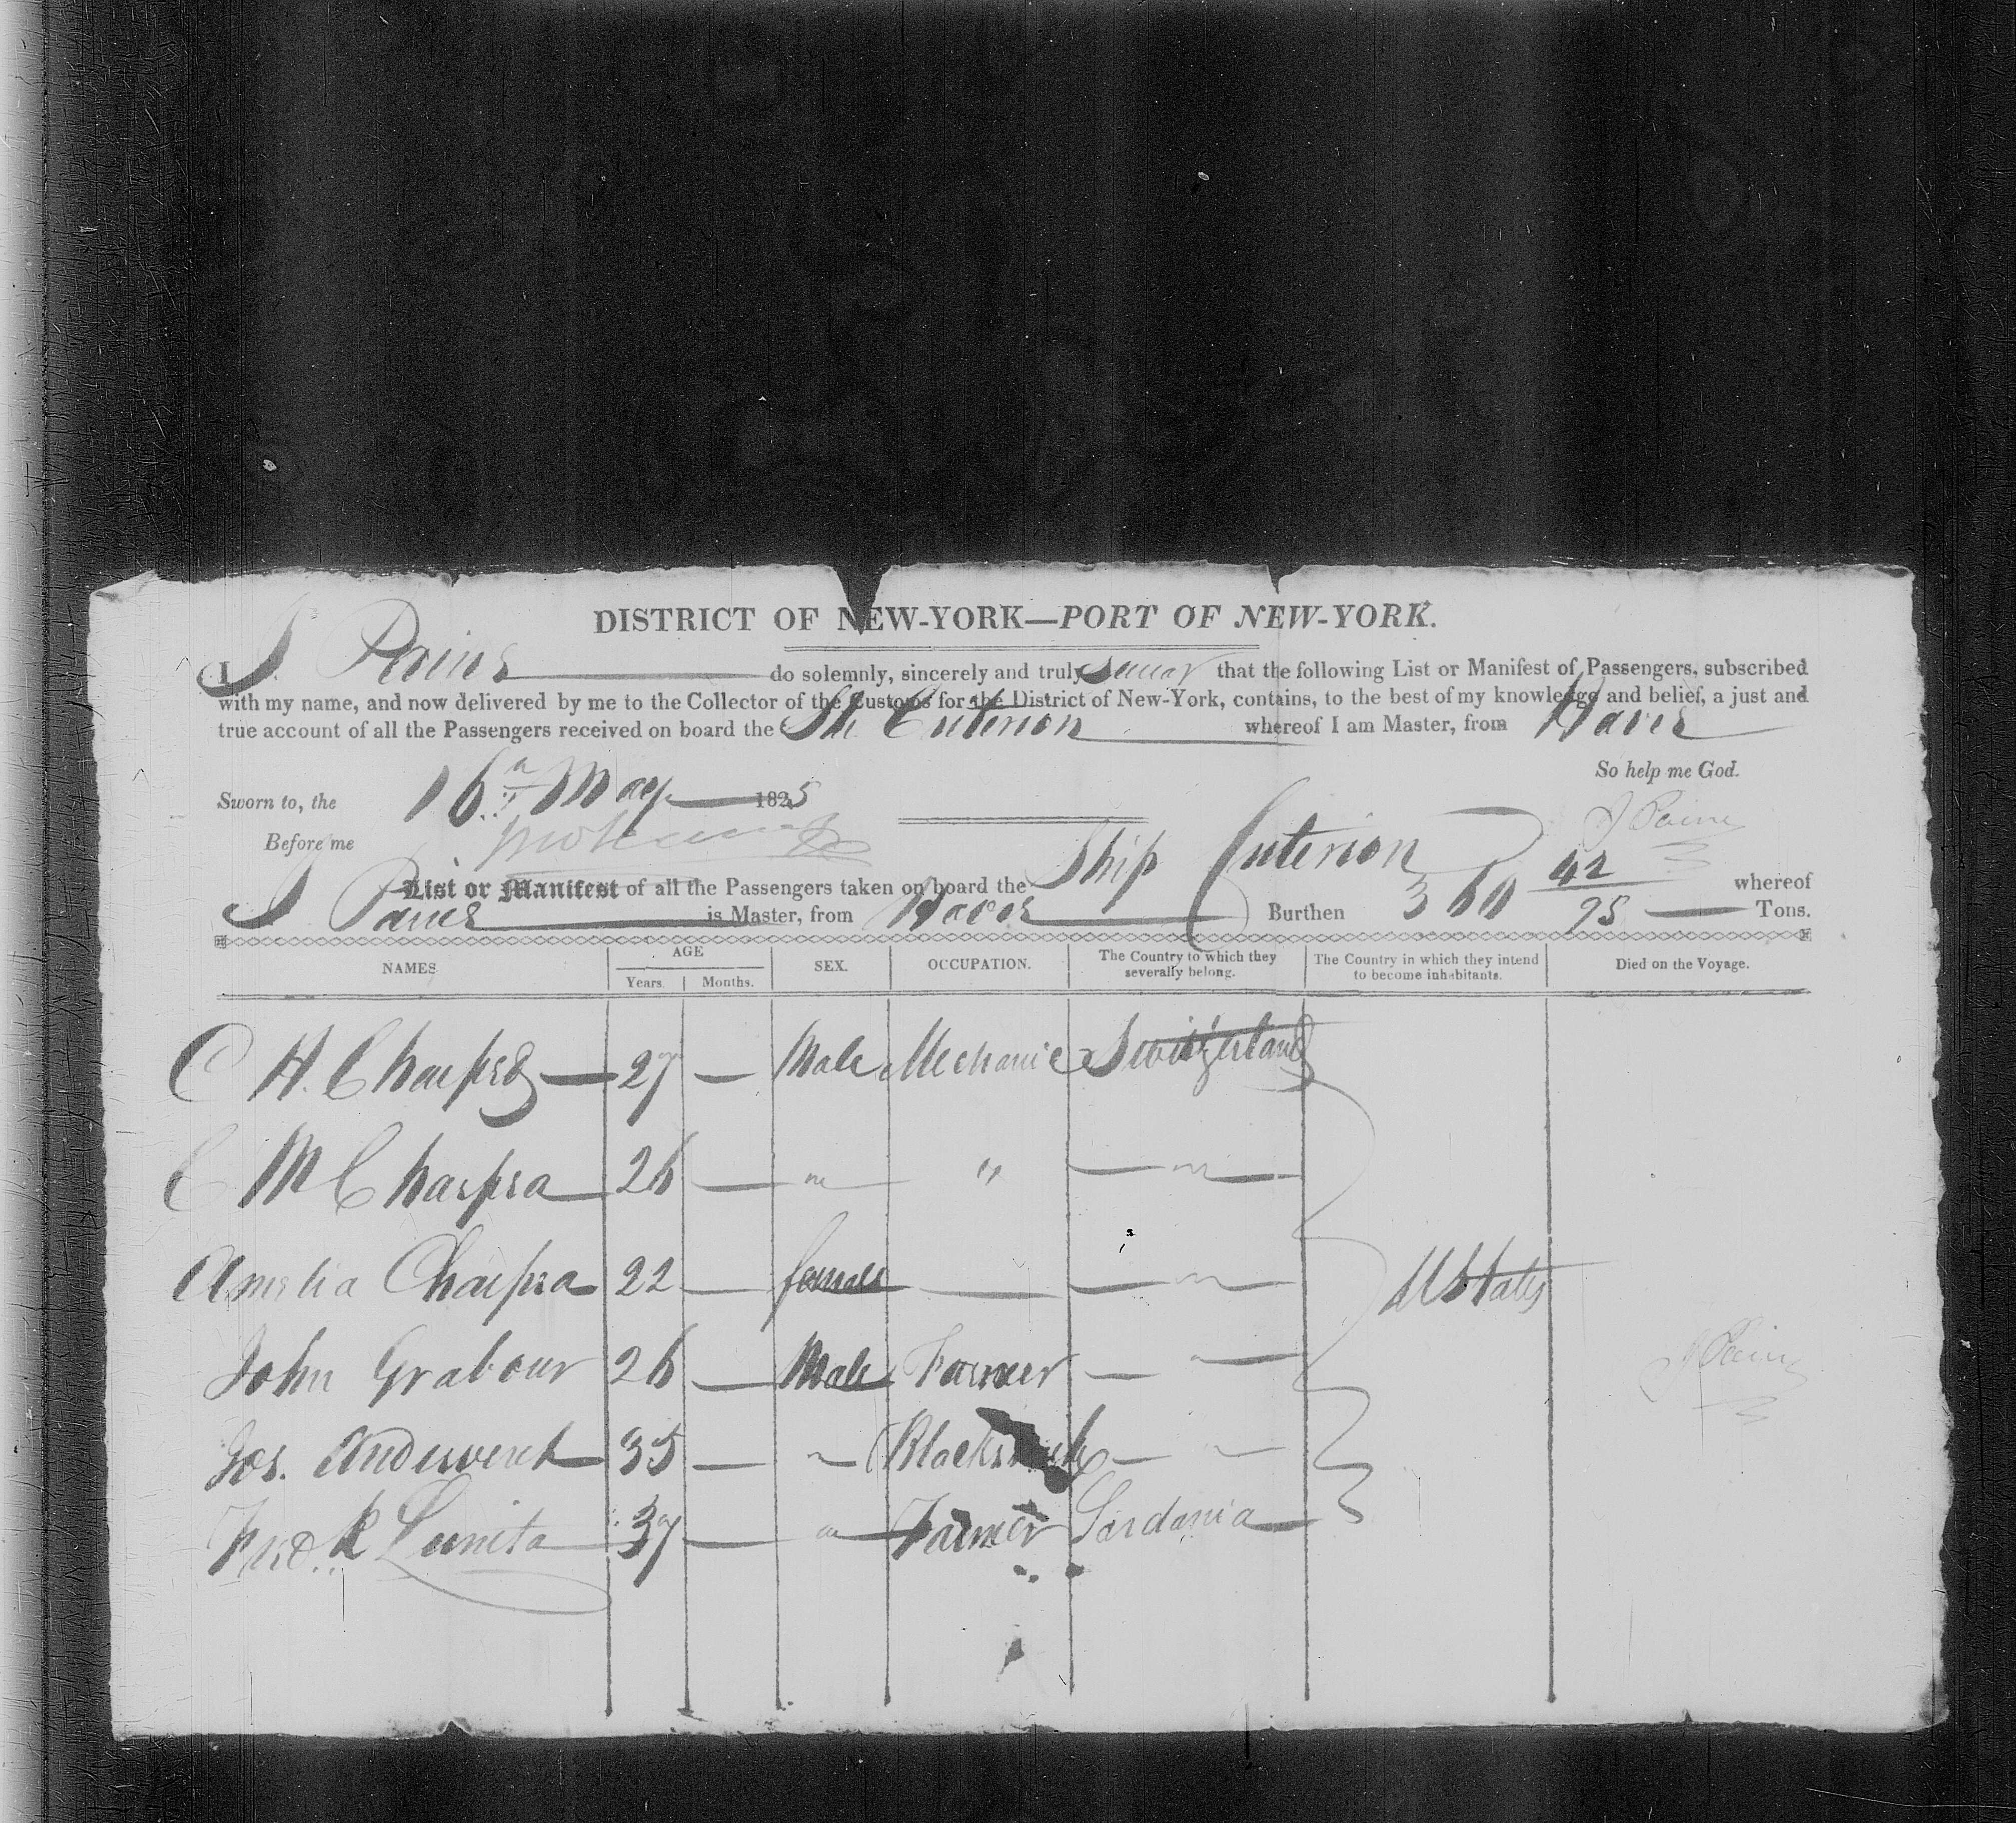 DISTRICT OF NEW-YORK—PORT OF NEW-YORK.
I J. Paine do solemnly, sincerely and truly swear that the following List or Manifest of Passengers, subscribed
with my name, and now delivered by me to the Collector of the Customs for the District of New-York, contains, to the best of my knowledge and belief, a just and
true account of all the Passengers received on board the Sh. Criterion whereof I am Master, from Havre
So help me God.
Sworn to, the 16th May 1825
J Paine
Before me
List or Manifest of all the Passengers taken on board the Ship Criterion whereof
J Paine is Master, from Havre Burthen 360 42/95 Tons.
NAMES AGE SEX. OCCUPATION. The Country to which they severally belong. The Country in which they intend to become inhabitants. Died on the Voyage.
Years Months.
C H. 27 — Male Mechanic Switzerland
C M 26 — " " — " —
Amelia 22 — female — — " —
U States
John Grabour 26 — Male Farmer — " —
J Paine
Jos. 35 — " Blacksmith — " —
Fred. R 37 — " Farmer Sardania